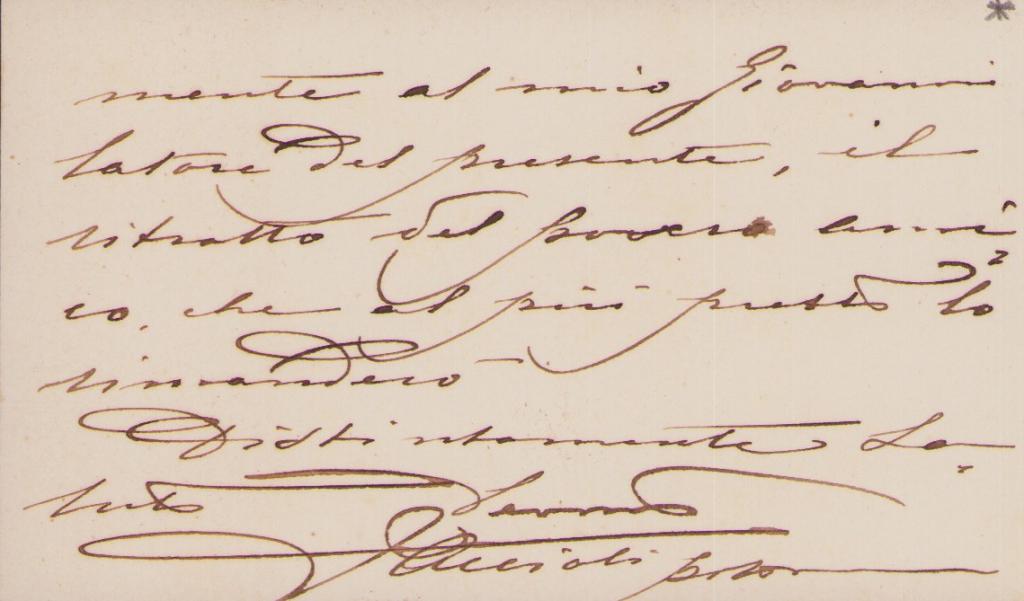 mente al mio Giovanni
latore del presente, il
ritratto del povero ami-
co, che al più presto lo
rimanderò
Distintamente La
luto